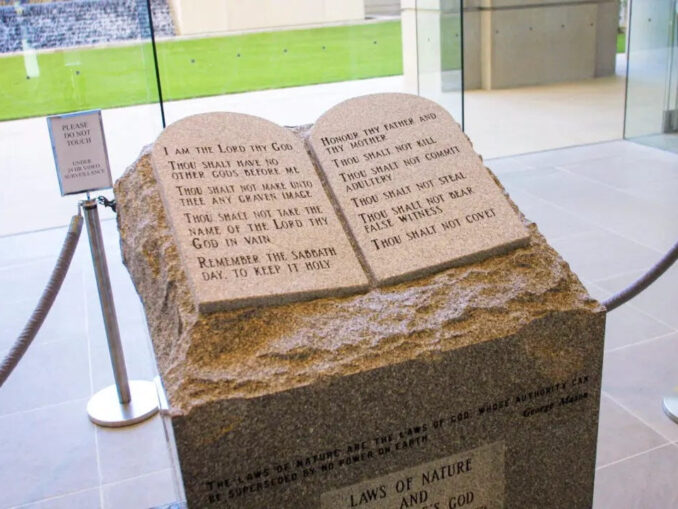 PLEASE
DO NOT
TOUCH
UNDER
24 HR VIDEO
SURVEILLANCE
I AM THE LORD THY GOD
THOU SHALT HAVE NO
OTHER GODS BEFORE ME
THOU SHALT NOT MAKE UNTO
THEE ANY GRAVEN IMAGE
THOU SHALT NOT TAKE THE
NAME OF THE LORD THY
GOD IN VAIN
REMEMBER THE SABBATH
DAY, TO KEEP IT HOLY
HONOUR THY FATHER AND
THY MOTHER
THOU SHALT NOT KILL
THOU SHALT NOT COMMIT
ADULTERY
THOU SHALT NOT STEAL
THOU SHALT NOT BEAR
FALSE WITNESS
THOU SHALT NOT COVET
THE LAWS OF NATURE ARE THE LAWS OF GOD, WHOSE AUTHORITY CAN
BE SUPERSEDED BY NO POWER ON EARTH
George Mason
LAWS OF NATURE
AND
GOD